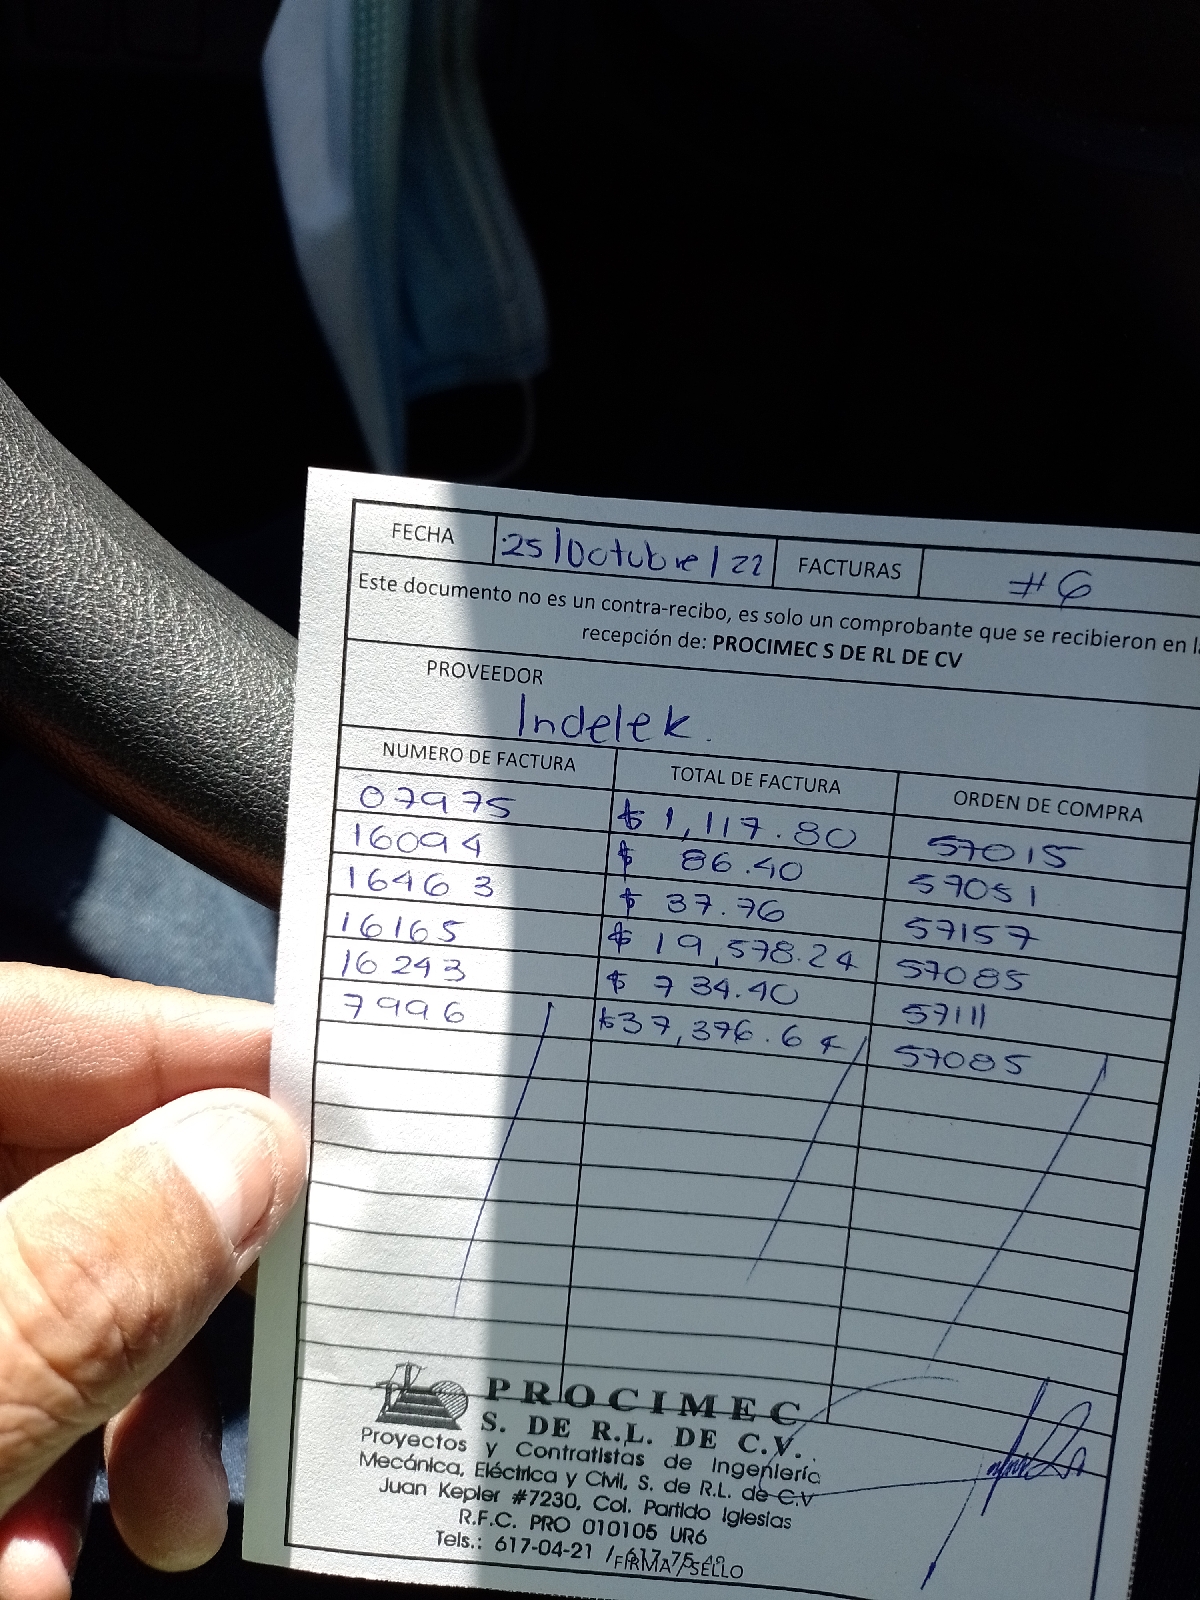 FECHA 25/Octubre/22 FACTURAS #6
Este documento no es un contra-recibo, es solo un comprobante que se recibieron en
recepción de: PROCIMEC S DE RL DE CV
PROVEEDOR
Indelek.
NUMERO DE FACTURA TOTAL DE FACTURA ORDEN DE COMPRA
07975 $ 1,117.80 57015
16094 $ 86.40 57051
16463 $ 37.76 57157
16165 $ 19,578.24 57085
16243 $ 734.40 57111
7996 $37,376.64 57085
PROCIMEC
S. DE R.L. DE C.V.
Proyectos y Contratistas de Ingeniería
Mecánica, Eléctrica y Civil, S. de R.L. de C.V
Juan Kepler #7230, Col. Partido Iglesias
R.F.C. PRO 010105 UR6
Tels.: 617-04-21 /
FIRMA/SELLO